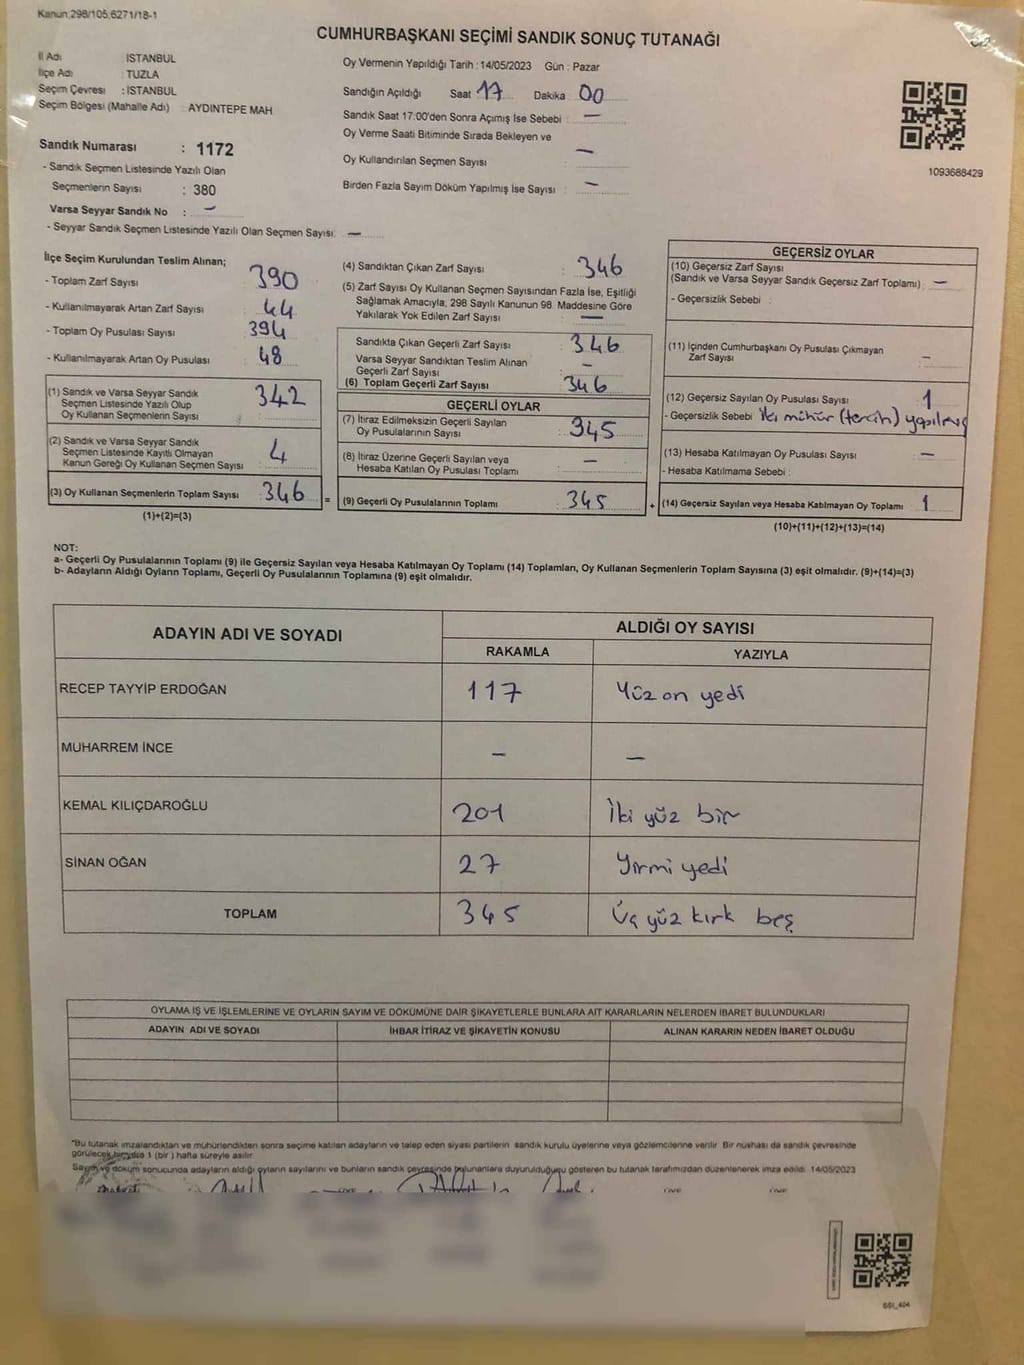 Kanun.298/105,6271/18-1
CUMHURBAŞKANI SEÇİMİ SANDIK SONUÇ TUTANAĞI
İl Adı İSTANBUL
İlçe Adı : TUZLA
Seçim Çevresi : İSTANBUL
Seçim Bölgesi (Mahalle Adı) : AYDINTEPE MAH
Sandık Numarası : 1172
- Sandık Seçmen Listesinde Yazılı Olan
Seçmenlerin Sayısı : 380
Varsa Seyyar Sandık No : –
- Seyyar Sandık Seçmen Listesinde Yazılı Olan Seçmen Sayısı: –
Oy Vermenin Yapıldığı Tarih : 14/05/2023 Gün : Pazar
Sandığın Açıldığı Saat 17 Dakika 00
Sandık Saat 17:00'den Sonra Açımış İse Sebebi : –
Oy Verme Saati Bitiminde Sırada Bekleyen ve
Oy Kullandırılan Seçmen Sayısı : –
Birden Fazla Sayım Döküm Yapılmış İse Sayısı : –
1093688429
İlçe Seçim Kurulundan Teslim Alınan;
- Toplam Zarf Sayısı : 390
- Kullanılmayarak Artan Zarf Sayısı : 44
- Toplam Oy Pusulası Sayısı : 394
- Kullanılmayarak Artan Oy Pusulası : 48
(1) Sandık ve Varsa Seyyar Sandık
Seçmen Listesinde Yazılı Olup
Oy Kullanan Seçmenlerin Sayısı : 342
(2) Sandık ve Varsa Seyyar Sandık
Seçmen Listesinde Kayıtlı Olmayan
Kanun Gereği Oy Kullanan Seçmen Sayısı : 4
(3) Oy Kullanan Seçmenlerin Toplam Sayısı : 346
(1)+(2)=(3)
=
(4) Sandıktan Çıkan Zarf Sayısı : 346
(5) Zarf Sayısı Oy Kullanan Seçmen Sayısından Fazla İse, Eşitliği
Sağlamak Amacıyla, 298 Sayılı Kanunun 98. Maddesine Göre
Yakılarak Yok Edilen Zarf Sayısı : –
Sandıkta Çıkan Geçerli Zarf Sayısı : 346
Varsa Seyyar Sandıktan Teslim Alınan
Geçerli Zarf Sayısı : –
(6) Toplam Geçerli Zarf Sayısı : 346
GEÇERLİ OYLAR
(7) İtiraz Edilmeksizin Geçerli Sayılan
Oy Pusulalarının Sayısı : 345
(8) İtiraz Üzerine Geçerli Sayılan veya
Hesaba Katılan Oy Pusulası Toplamı : –
(9) Geçerli Oy Pusulalarının Toplamı : 345
+
GEÇERSİZ OYLAR
(10) Geçersiz Zarf Sayısı
(Sandık ve Varsa Seyyar Sandık Geçersiz Zarf Toplamı) : –
- Geçersizlik Sebebi :
(11) İçinden Cumhurbaşkanı Oy Pusulası Çıkmayan
Zarf Sayısı : –
(12) Geçersiz Sayılan Oy Pusulası Sayısı : 1
- Geçersizlik Sebebi : iki mühür (tercih) yapılmış
(13) Hesaba Katılmayan Oy Pusulası Sayısı : –
- Hesaba Katılmama Sebebi :
(14) Geçersiz Sayılan veya Hesaba Katılmayan Oy Toplamı : 1
(10)+(11)+(12)+(13)=(14)
NOT:
a- Geçerli Oy Pusulalarının Toplamı (9) ile Geçersiz Sayılan veya Hesaba Katılmayan Oy Toplamı (14) Toplamları, Oy Kullanan Seçmenlerin Toplam Sayısına (3) eşit olmalıdır. (9)+(14)=(3)
b- Adayların Aldığı Oyların Toplamı, Geçerli Oy Pusulalarının Toplamına (9) eşit olmalıdır.
ADAYIN ADI VE SOYADI ALDIĞI OY SAYISI
RAKAMLA YAZIYLA
RECEP TAYYİP ERDOĞAN 117 Yüz on yedi
MUHARREM İNCE – –
KEMAL KILIÇDAROĞLU 201 İki yüz bir
SİNAN OĞAN 27 Yirmi yedi
TOPLAM 345 Üç yüz kırk beş
OYLAMA İŞ VE İŞLEMLERİNE VE OYLARIN SAYIM VE DÖKÜMÜNE DAİR ŞİKAYETLERLE BUNLARA AİT KARARLARIN NELERDEN İBARET BULUNDUKLARI
ADAYIN ADI VE SOYADI İHBAR İTİRAZ VE ŞİKAYETİN KONUSU ALINAN KARARIN NEDEN İBARET OLDUĞU
"Bu tutanak imzalandıktan ve mühürlendikten sonra seçime katılan adayların ve talep eden siyasi partilerin sandık kurulu üyelerine veya gözlemcilerine verilir. Bir nüshası da sandık çevresinde
görülecek bir yere 1 (bir) hafta süreyle asılır.
Sayım ve döküm sonucunda adayların aldığı oyların sayılarını ve bunların sandık çevresinde bulunanlara duyurulduğunu gösteren bu tutanak tarafımızdan düzenlenerek imza edildi. 14/05/2023